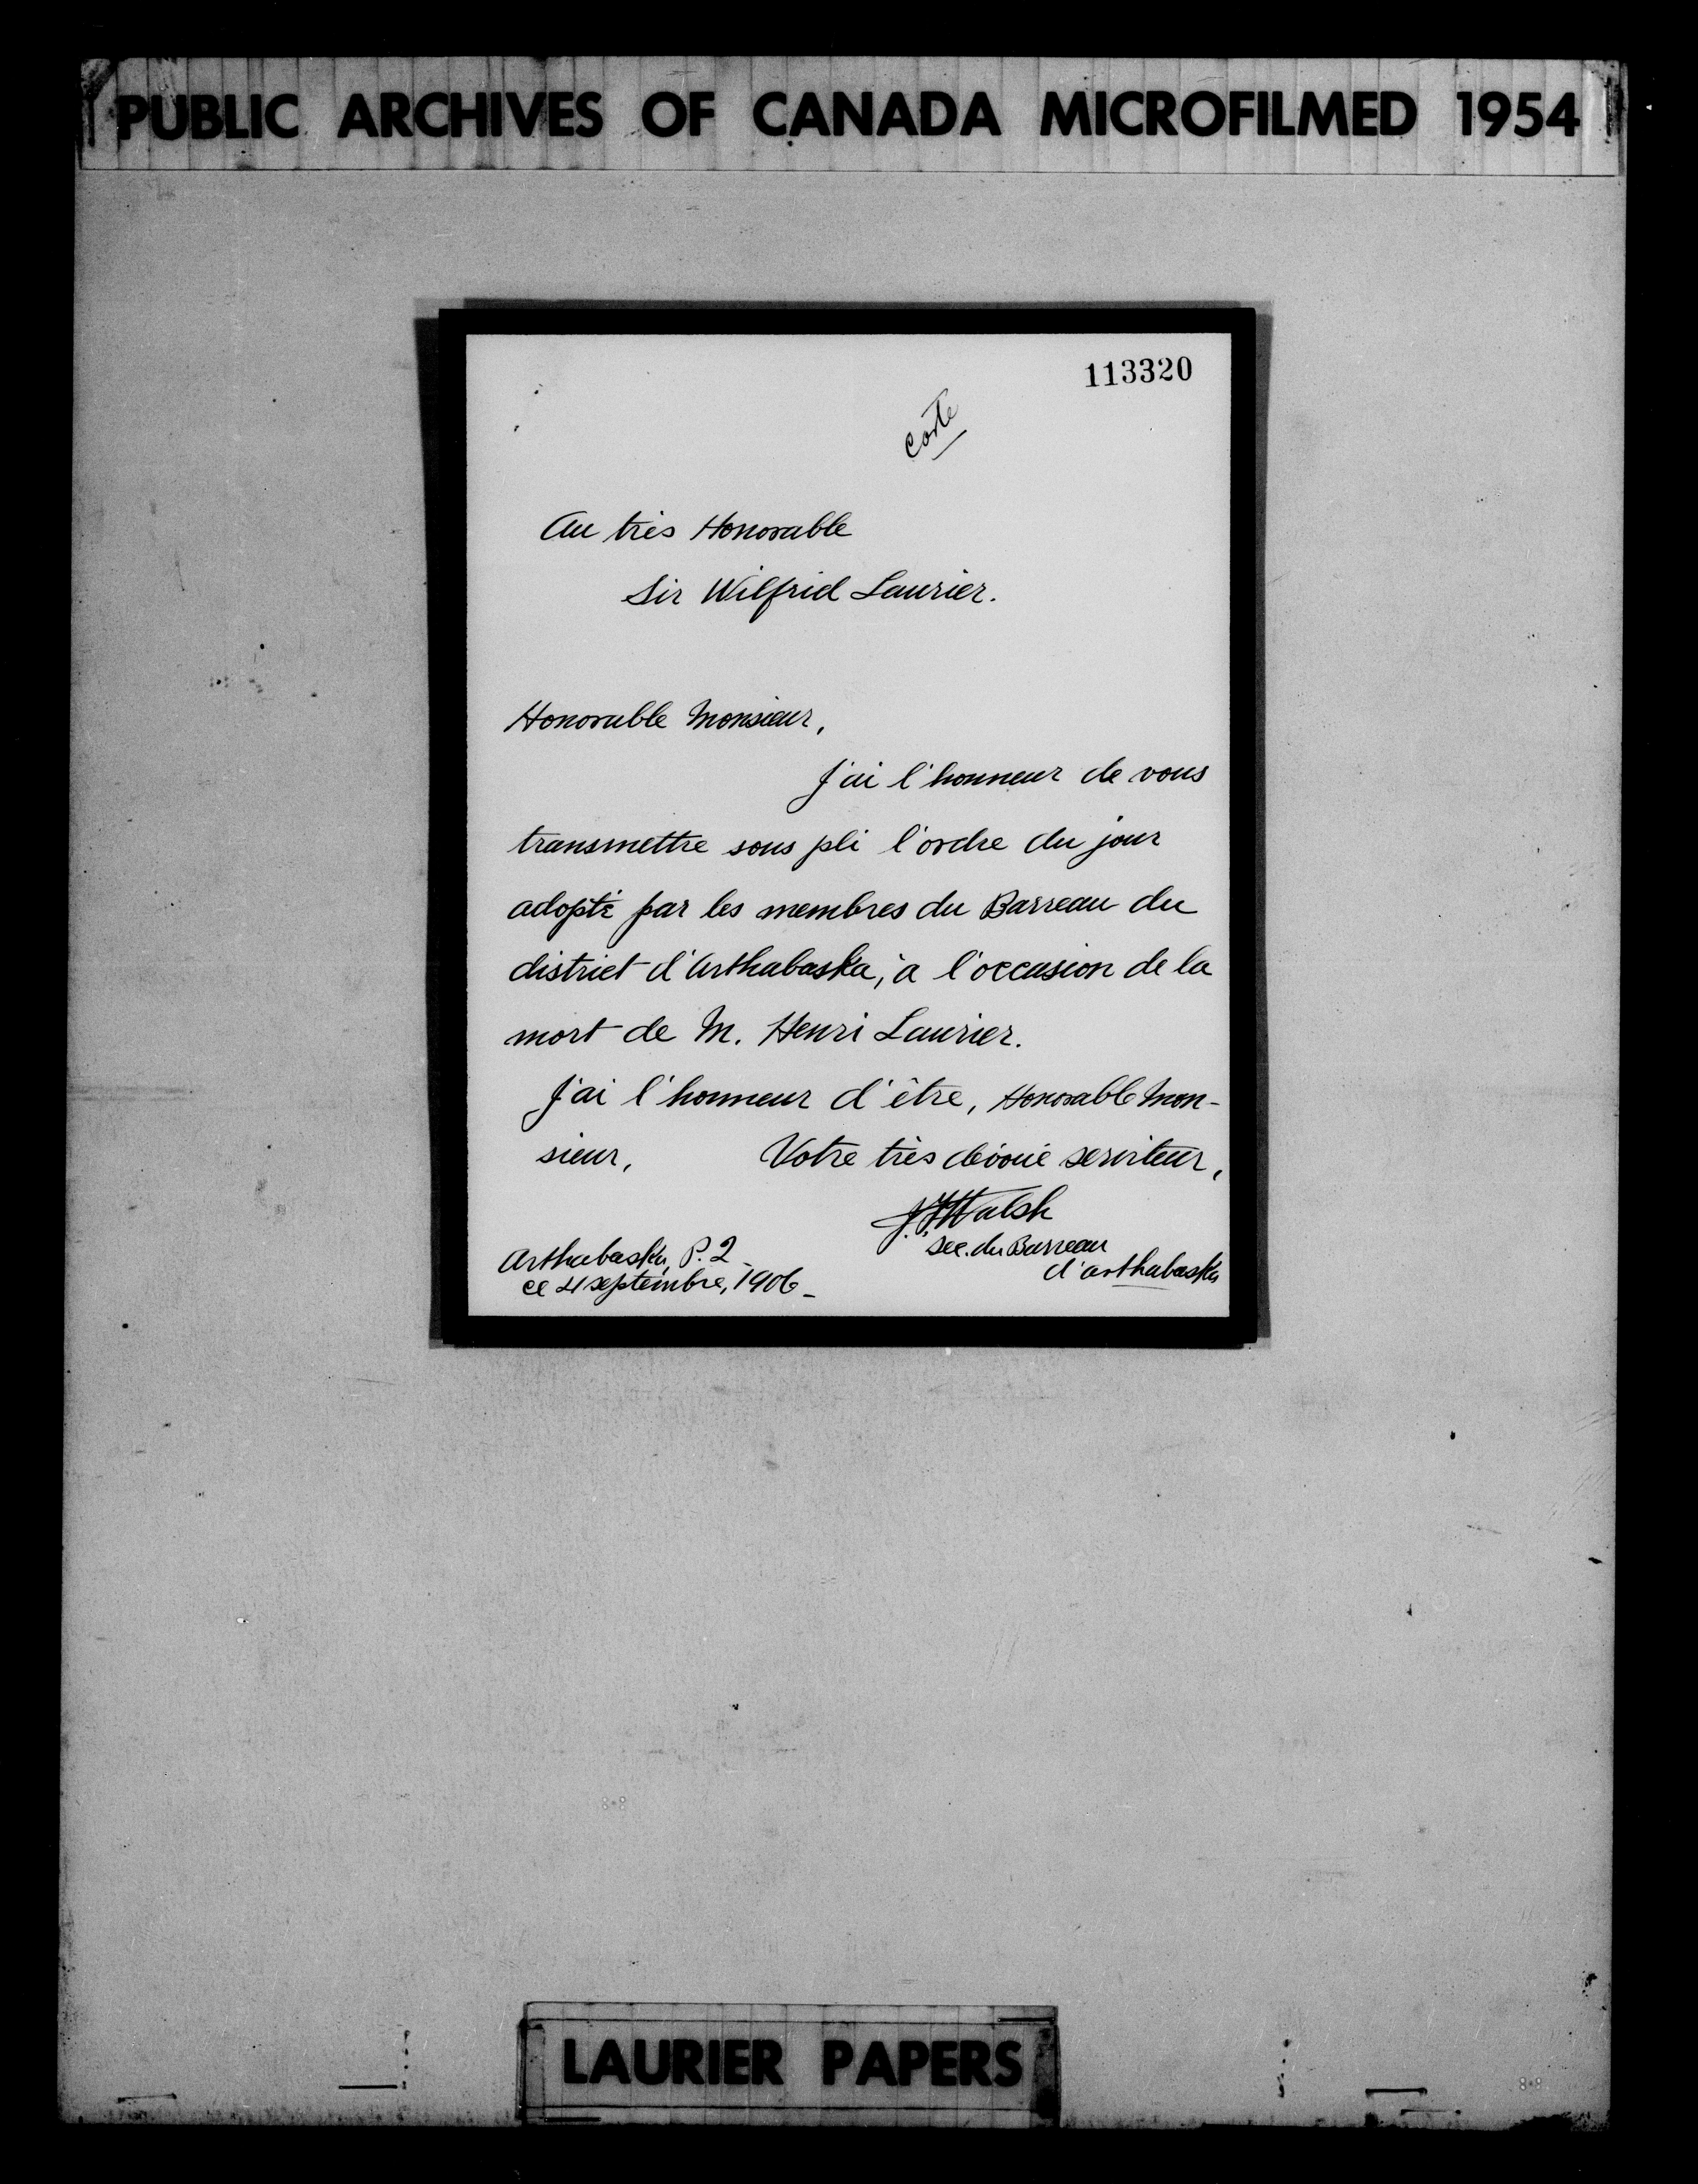 PUBLIC ARCHIVES OF CANADA MICROFILMED 1954
113320
Carte
Au très Honorable
Sir Wilfrid Laurier.
Honorable Monsieur,
J'ai l'honneur de vous
transmettre sous pli l'ordre du jour
adopté par les membres du Barreau du
district d'Arthabaska, à l'occasion de la
mort de M. Henri Laurier.
J'ai l'honneur d'être, Honorable Mon-
sieur, Votre très dévoué serviteur,
Walsh
Sec. du Barreau
d'arthabaska
Arthabaska, P. Q.
ce 4 septembre, 1906_
LAURIER PAPERS